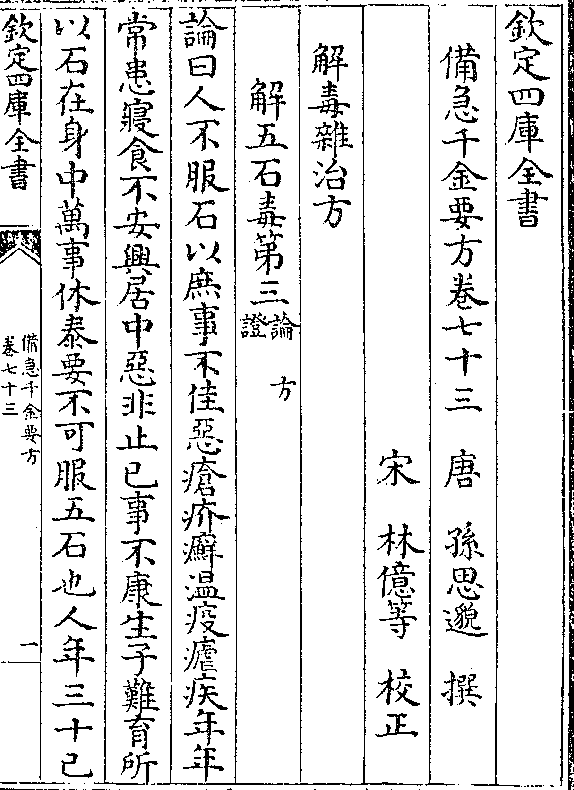 欽定四庫全書
備急千金要方卷七十三　唐　孫思邈　撰
宋　林億等　校正
解毒雜治方
解五石毒第三論證　方
論曰人不服石以庶事不佳惡瘡疥癬温疫瘧疾年年
常患寢食不安興居中惡非止已事不康生子難育所
以石在身中萬事休泰要不可服五石也人年三十已
欽定四庫全書
備急千金要方
卷七十三
一